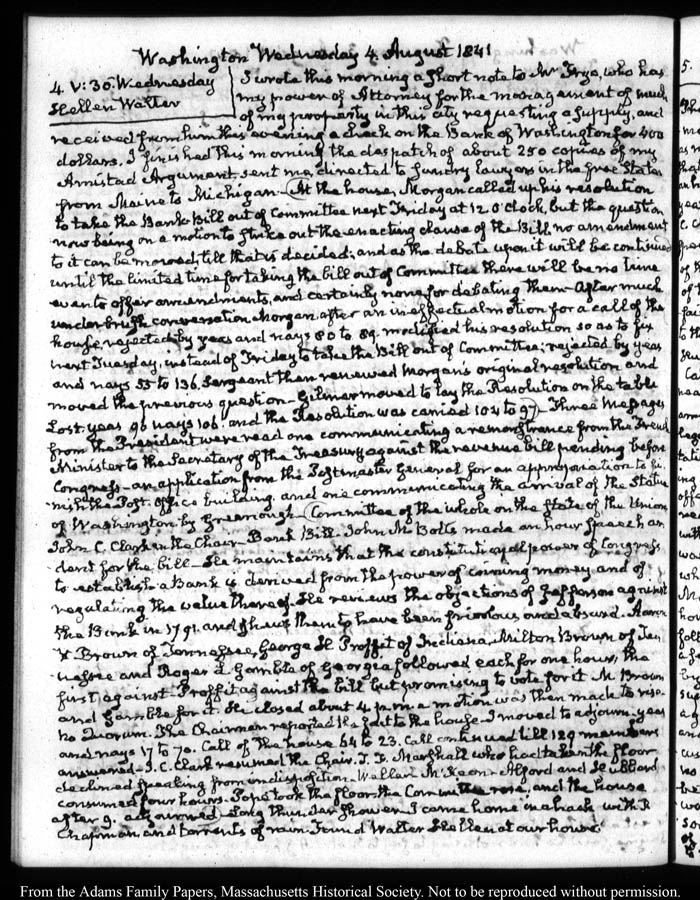 Washington Wednesday 4 August 1841
4. V:30. Wednesday
Hellen Walter
I wrote this morning a short note to Mr Frye, who has
my power of Attorney for the management of much
of my property in this city requesting a supply, and
received from him this evening a check on the Bank of Washington for 400
dollars. I finished this morning the despatch of about 250 copies of my
Amistad Argument, sent me, directed to sundry lawyers in the free States
from Maine to Michigan. At the house, Morgan called up his resolution
to take the Bank Bill out of Committee next Friday at 12 O'Clock, but the question
now being on a motion to strike out the enacting clause of the Bill, no amendment
to it can be moved till that is decided; and as the debate upon it will be continued
until the limited time for taking the bill out of Committee there will be no time
even to offer amendments, and certainly none for debating them. After much
under brush conversation Morgan after an ineffectual motion for a call of the
house, rejected by yeas and nays 80 to 89. modified his resolution so as to fix
next Tuesday, instead of Friday to take the Bill out of Committee; rejected by yeas
and nays 55 to 136. Sergeant then renewed Morgan's original resolution and
moved the previous question. Gilmer moved to lay the Resolution on the table
Lost. yeas 90 nays 106. and the Resolution was carried 104 to 97. Three Messages
from the President were read one communicating a remonstrance from the French
Minister to the Secretary of the Treasury against the revenue bill pending before
Congress—an application from the Postmaster General for an appropriation to fi-
nish the Post-Office building. and one communicating the arrival of the Statue
of Washington by Greenough. Committee of the whole on the state of the Union
John C. Clark in the Chair—Bank Bill. John M. Botts made an hour speech ar-
dent for the bill—He maintains that the constitutional power of Congress
to establish a Bank is derived from the power of coining money and of
regulating the value thereof. He reviews the objections of Jefferson against
the Bank in 1791. and shews them to have been frivolous and absurd. Aaron
V. Brown of Tennessee, George H Proffit of Indiana. Milton Brown of Ten-
nessee and Roger L. Gamble of Georgia followed each for one hour, the
first against. Proffit against the bill but promising to vote for it M. Brown
and Gamble for it. He closed about 4 p.m. a motion was then made to rise.
no Quorum. The Chairman reported the fact to the house. I moved to adjourn—yeas
and nays 17 to 70. Call of the house 64 to 23. Call continued till 129 members
answered—J. C. Clark resumed the Chair. T. F. Marshall who had taken the floor
declined speaking from indisposition. McKeon Alford and Hubbard
consumed four hours. Pope took the floor the Committee rose, and the house
after 9. adjourned. Long thunder shower. I came home in a hack with
Chapman and torrents of rain. Found Walter Hellen at our house.
From the Adams Family Papers, Massachusetts Historical Society. Not to be reproduced without permission.